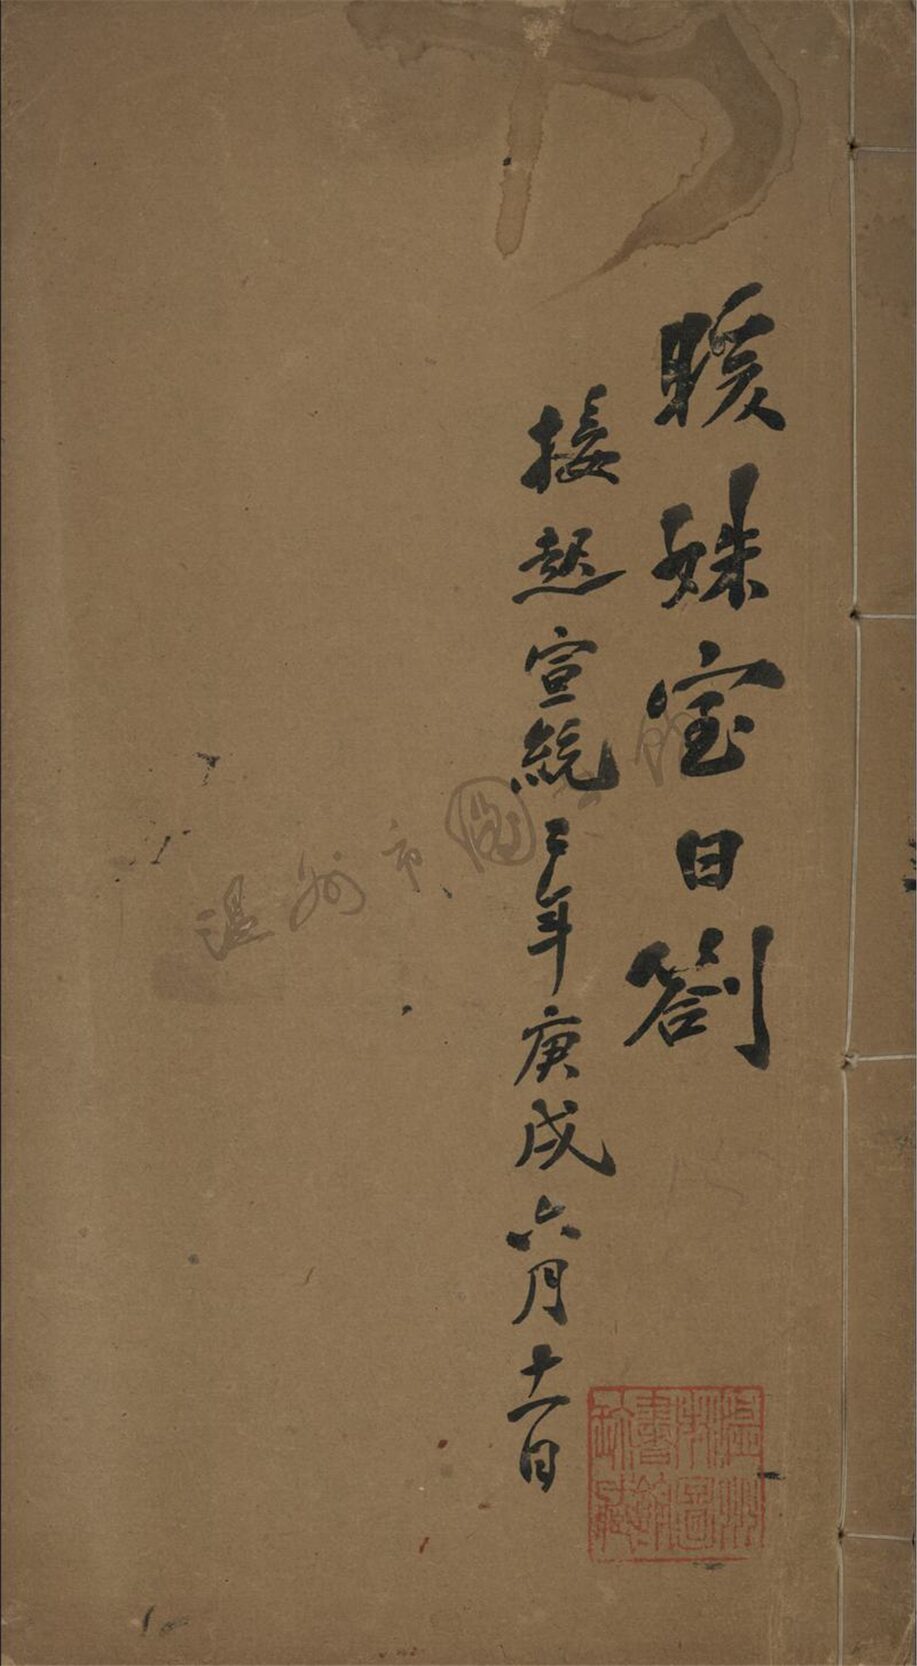 暖姝室日劄
接起宣統二年庚戌六月十一日
温州市图
温州
市圖
書館
珎藏